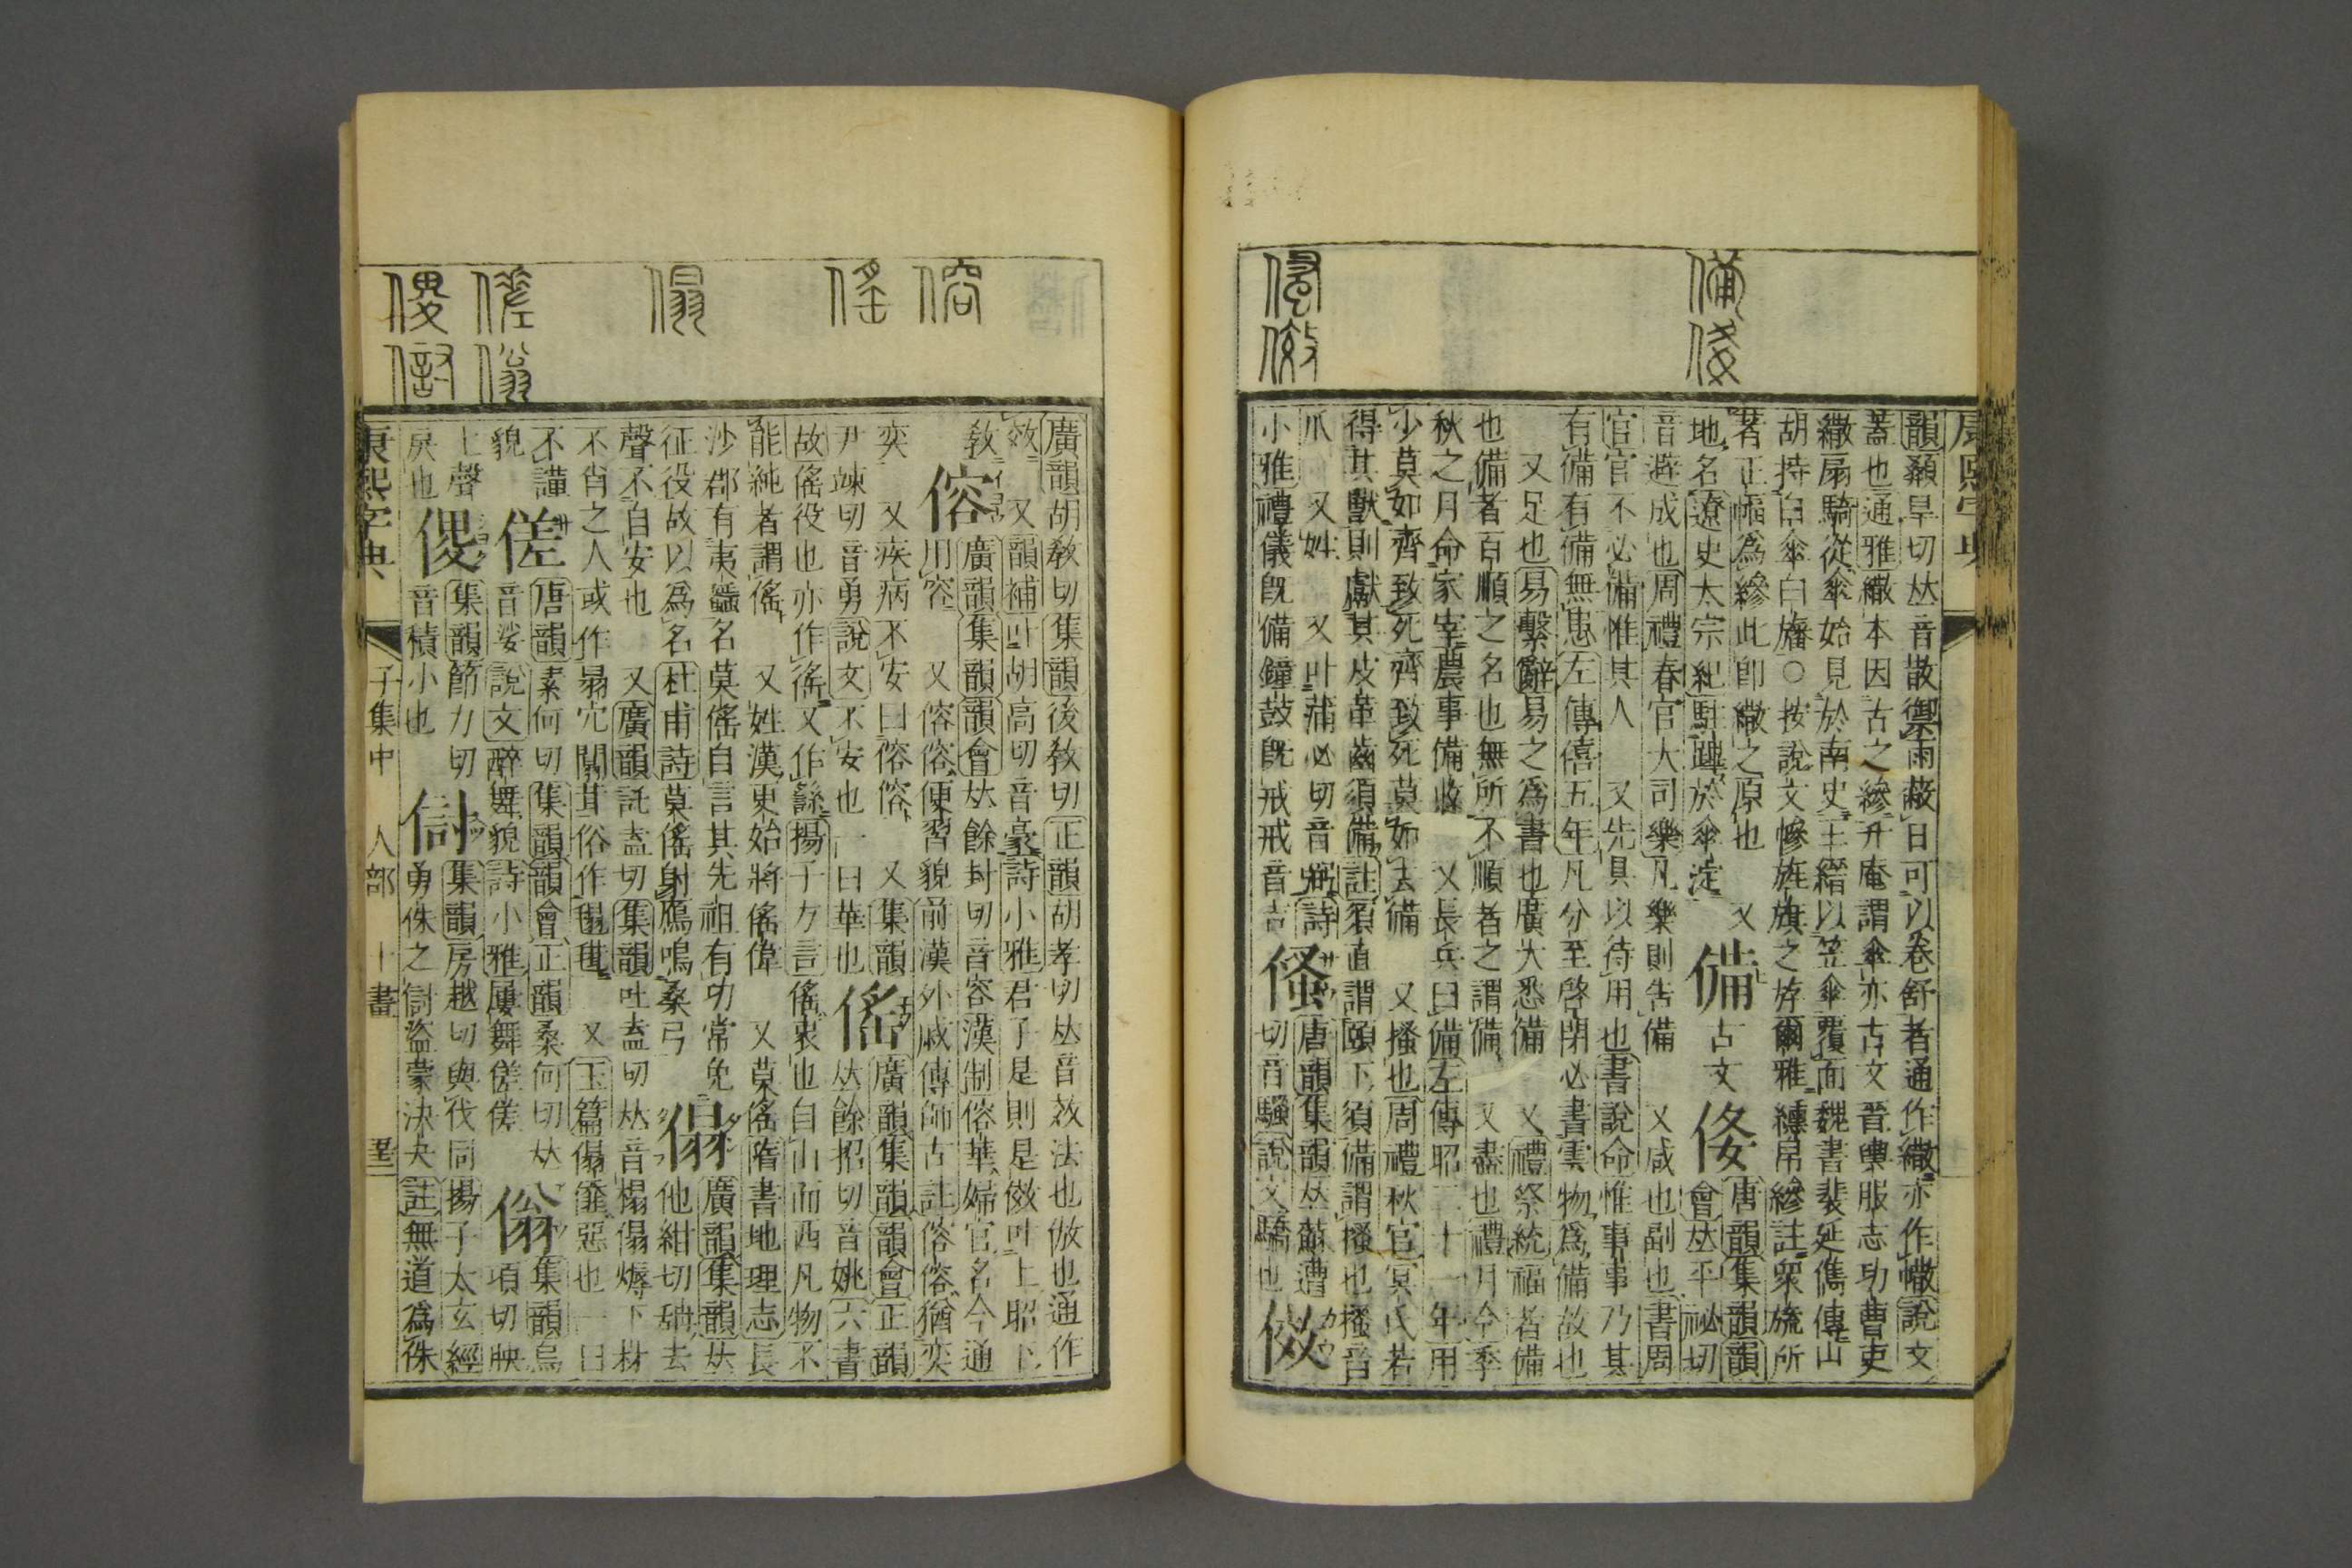 康熙字典
韻顙旱切𠀤音散禦雨蔽日可以卷舒者通作繖亦作㡎說文
蓋也通雅繖本因古之縿升庵謂傘亦古文晉輿服志功曹吏
繖扇騎從傘始見於南史王縉以笠傘覆面魏書裴延儁傳山
胡持白傘白旛○按說文幓旌旗之斿爾雅纁帛縿註衆旒所
著正幅爲縿此卽繖之原也 又
地名遼史太宗紀駐蹕於傘淀
備 古文 㑫 唐韻集韻韻
會𠀤平祕切
音避成也周禮春官大司樂凡樂則告備 又咸也副也書周
官官不必備惟其人 又先具以待用也書說命惟事事乃其
有備有備無患左傳僖五年凡分至啓閉必書雲物爲備故也
又足也易繫辭易之爲書也廣大悉備 又禮祭統福者備
也備者百順之名也無所不順者之謂備 又盡也禮月令季
秋之月命冢宰農事備收 又長兵曰備左傳昭二十一年用
少莫如齊致死齊致死莫如去備 又搔也周禮秋官冥氏若
得其獸則獻其皮革齒須備註須直謂頤下須備謂搔也搔音
爪 又姓 又叶蒲必切音弼詩
小雅禮儀旣備鐘鼓旣戒戒音吉
㑪 唐韻集韻𠀤蘇遭
切音騷說文驕也
傚
廣韻胡敎切集韻後敎切正韻胡孝切𠀤音效法也倣也通作
效 又韻補叶胡高切音豪詩小雅君子是則是傚叶上昭下
敎
傛 廣韻集韻韻會𠀤餘封切音容漢制傛華婦官名今通
用容 又傛傛便習貌前漢外戚傳師古註傛傛猶奕
奕 又疾病不安曰傛傛 又集韻
尹竦切音勇說文不安也一曰華也
傜 廣韻集韻韻會正韻
𠀤餘招切音姚六書
故傜役也亦作徭又作繇揚子方言傜衺也自山而西凡物不
能純者謂傜 又姓漢東始將傜偉 又莫傜隋書地理志長
沙郡有夷蜑名莫傜自言其先祖有功常免
征役故以爲名杜甫詩莫傜射鴈鳴桑弓
傝 廣韻集韻𠀤
他紺切舑去
聲不自安也 又廣韻託盍切集韻吐盍切𠀤音榻傝㒓下材
不肖之人或作㲩宂闒茸俗作毾㲪 又玉篇傝㒓惡也一曰
不謹
貌
傞 唐韻素何切集韻韻會正韻桑何切𠀤
音娑說文醉舞貌詩小雅屢舞傞傞
㑽 集韻烏
項切胦
上聲
㑺 集韻節力切
音稷小也
戾也
㑯 集韻房越切與伐同揚子太玄經
勇侏之㑯盜蒙決夬註無道爲侏
康熙字典 子集中 人部 十畫